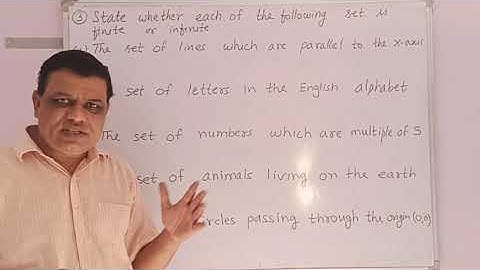 ③ State whether each of the following set is
finite or infinite
The set of lines which are parallel to the x-axis
set of letters in the English alphabet
The set of numbers which are multiple of 5
set of animals living on the earth
circles passing through the origin (0,0)